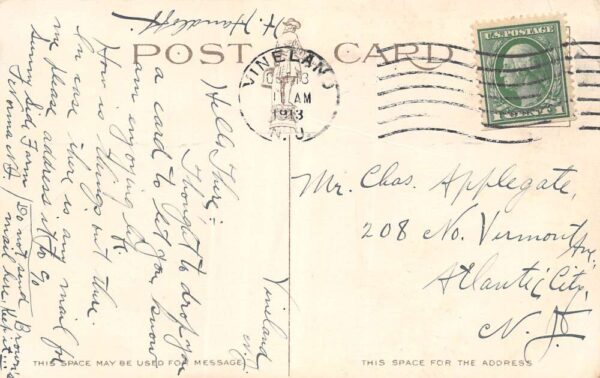 POST CARD
VINELAND
1913
AM
N.J.
U.S. POSTAGE
Vineland
N.J.
Hello There:
Thought to drop you
a card to let you know
am enjoying life.
How is things out there.
In case there is any mail for
me please address it to c/o
Sunny Side Farm
Norma NJ / Do not send Brown's
mail here. Keep it...
Mr. Chas. Applegate,
208 No. Vermont Av.
Atlantic City,
N. J.
THIS SPACE MAY BE USED FOR MESSAGE
THIS SPACE FOR THE ADDRESS